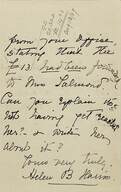 from your office
stating that the
had been forwarded
to Mrs Salmond.
Can you explain
its having got
her? & write her
about it?
Yours very truly,
Helen B